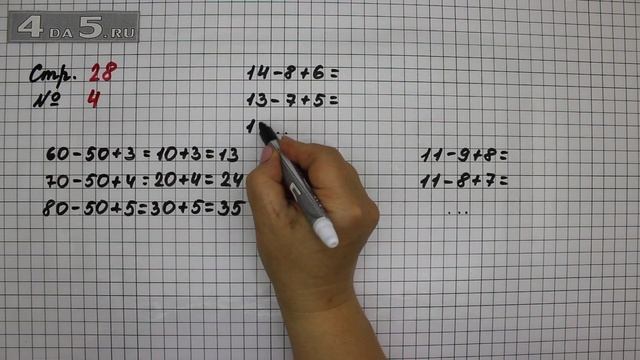 4ДА5.RU
Стр. 28
№ 4
14-8+6=
13-7+5=
1...
60-50+3=10+3=13
70-50+4=20+4=24
80-50+5=30+5=35
11-9+8=
11-8+7=
...